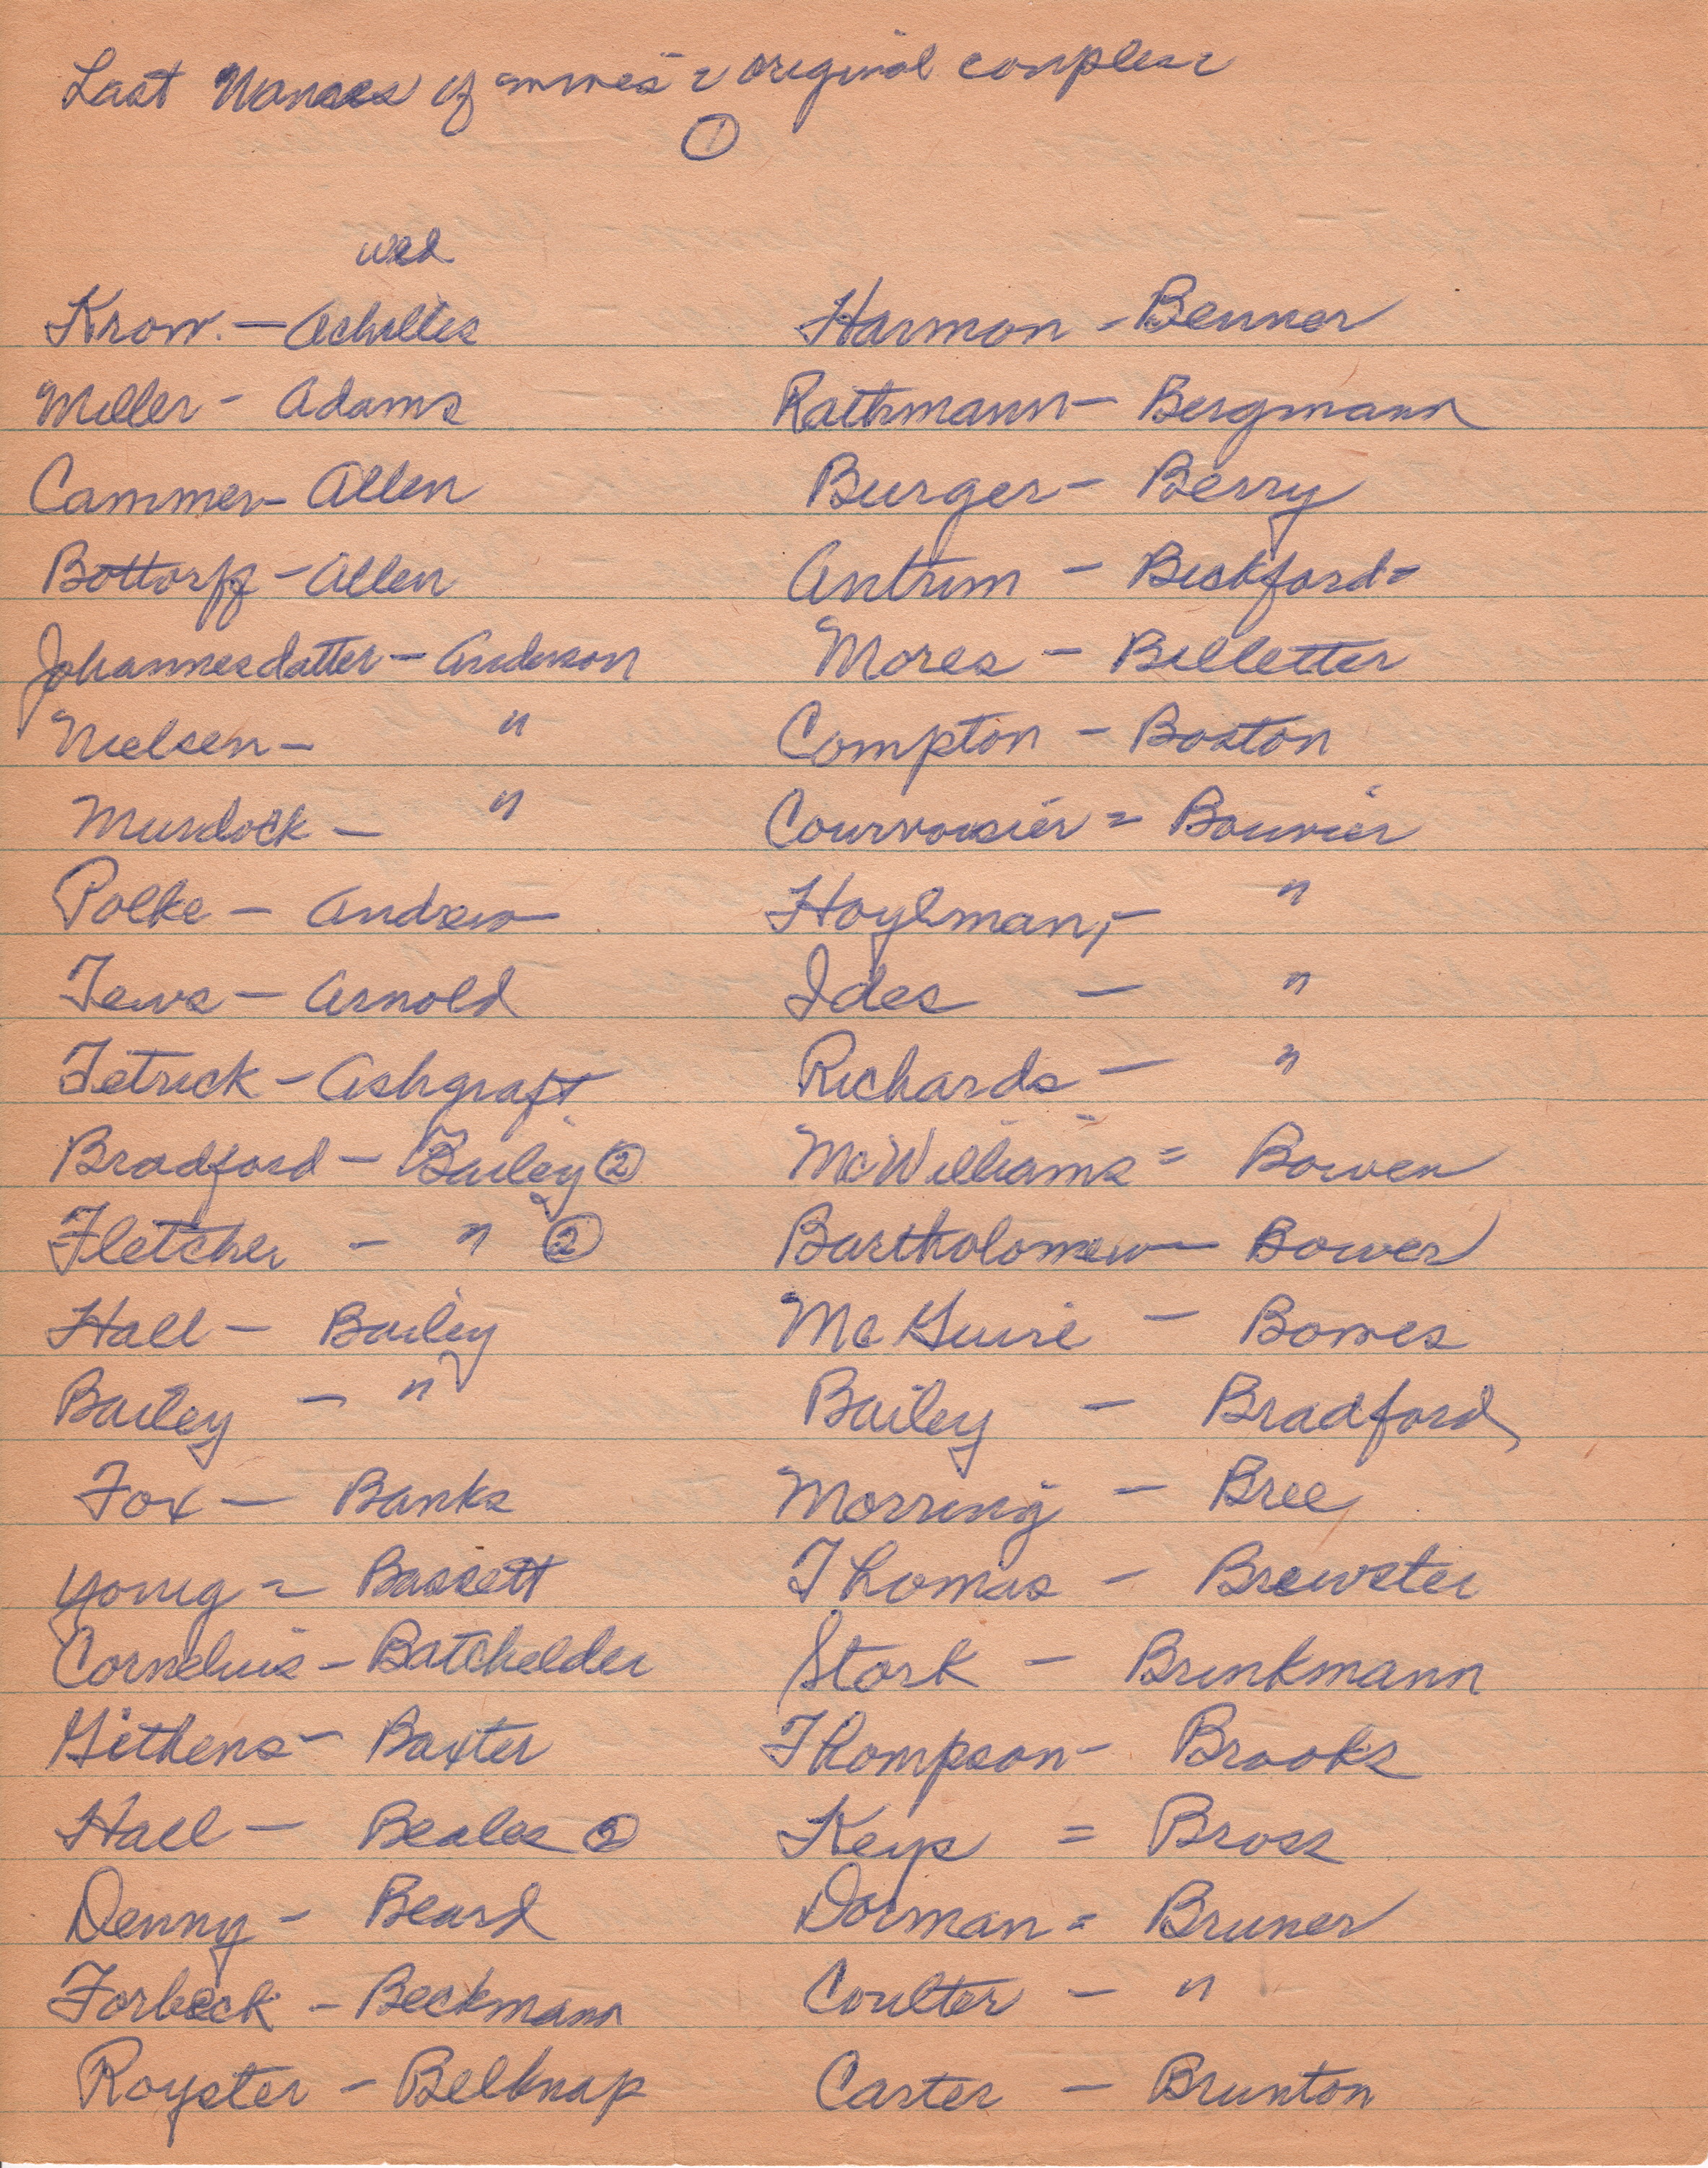 Last Names of - original couples
①
wed
Krow. — Achilles
Miller - Adams
Cammer - Allen
Bottorff - Allen
Johannesdatter - Anderson
Nielsen - "
Murdock - "
Polke - Andrew
Tews - Arnold
Tetrick - Ashgraft
Bradford - Bailey ②
Fletcher - " ②
Hall - Bailey
Bailey - "
Fox - Banks
Young = Bassett
Cornelius - Batchelder
Githens - Baxter
Hall - Beales ②
Denny - Beard
Forbeck - Beckmann
Royster - Belknap
Harmon - Benner
Rathmann - Bergmann
Burger - Berry
Antrim - Bickford -
Mores - Billetter
Compton - Boston
Courvoisier = Bouvier
Hoylman, - "
Ides - "
Richards - "
McWilliams = Bowen
Bartholomew - Bower
McGuire - Bowes
Bailey - Bradford
Morring - Bree
Thomas - Brewster
Stork - Brinkmann
Thompson - Brooks
Keys = Bross
Dorman = Bruner
Coulter - "
Carter - Brunton